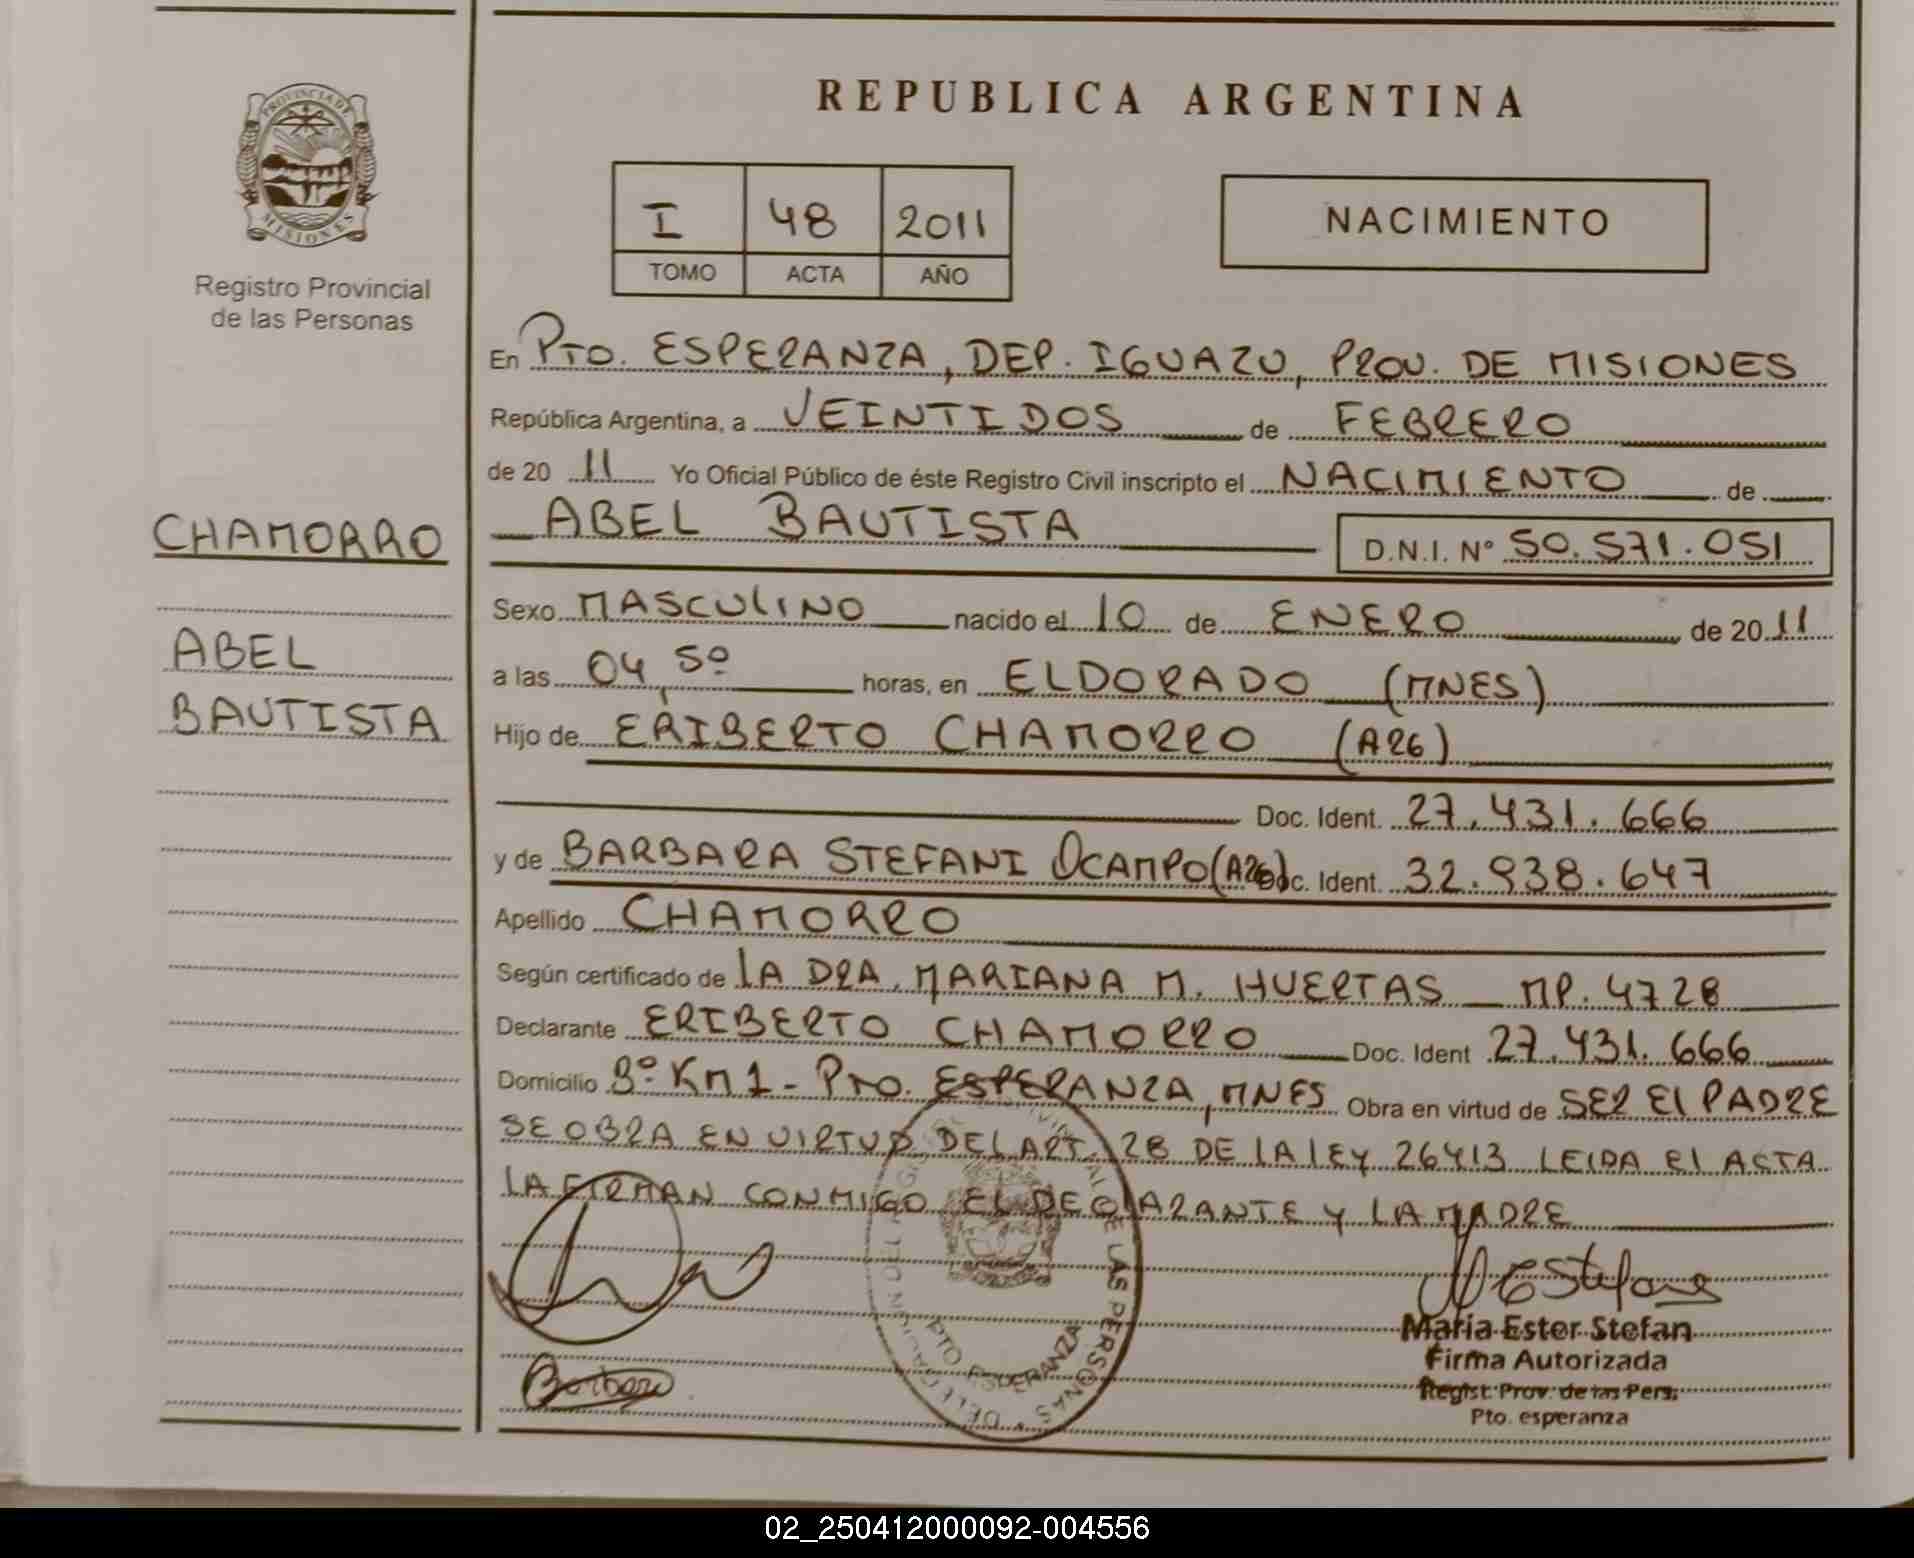 PROVINCIA DE
MISIONES
Registro Provincial
de las Personas
CHAMORRO
ABEL
BAUTISTA
REPUBLICA ARGENTINA
I 48 2011
TOMO ACTA AÑO
NACIMIENTO
En PTO. ESPERANZA, DEP. IGUAZU, PROV. DE MISIONES
República Argentina, a VEINTIDOS de FEBRERO
de 20 11 Yo Oficial Público de éste Registro Civil inscripto el NACIMIENTO de
ABEL BAUTISTA D.N.I. Nº 50.571.051
Sexo MASCULINO nacido el 10 de ENERO de 20 11
a las 04,50 horas, en ELDORADO (MNES)
Hijo de ERIBERTO CHAMORRO (ARG)
Doc. Ident. 27.431.666
y de BARBARA STEFANI OCAMPO (ARG) Doc. Ident. 32.938.647
Apellido CHAMORRO
Según certificado de LA DRA. MARIANA M. HUERTAS MP. 4728
Declarante ERIBERTO CHAMORRO Doc. Ident 27.431.666
Domicilio Bº KM 1 - PTO. ESPERANZA, MNES Obra en virtud de SER El PADRE
SE OBRA EN VIRTUD DEL ART. 28 DE LA LEY 26413 LEIDA El ACTA
LA FIRMAN CONMIGO EL DECLARANTE Y LA MADRE
DE LAS PERSONAS
PTO ESPERANZA
M E Stefan
Maria Ester Stefan
Firma Autorizada
Regist. Prov. de las Pers.
Pto. esperanza
Barbara
02_250412000092-004556